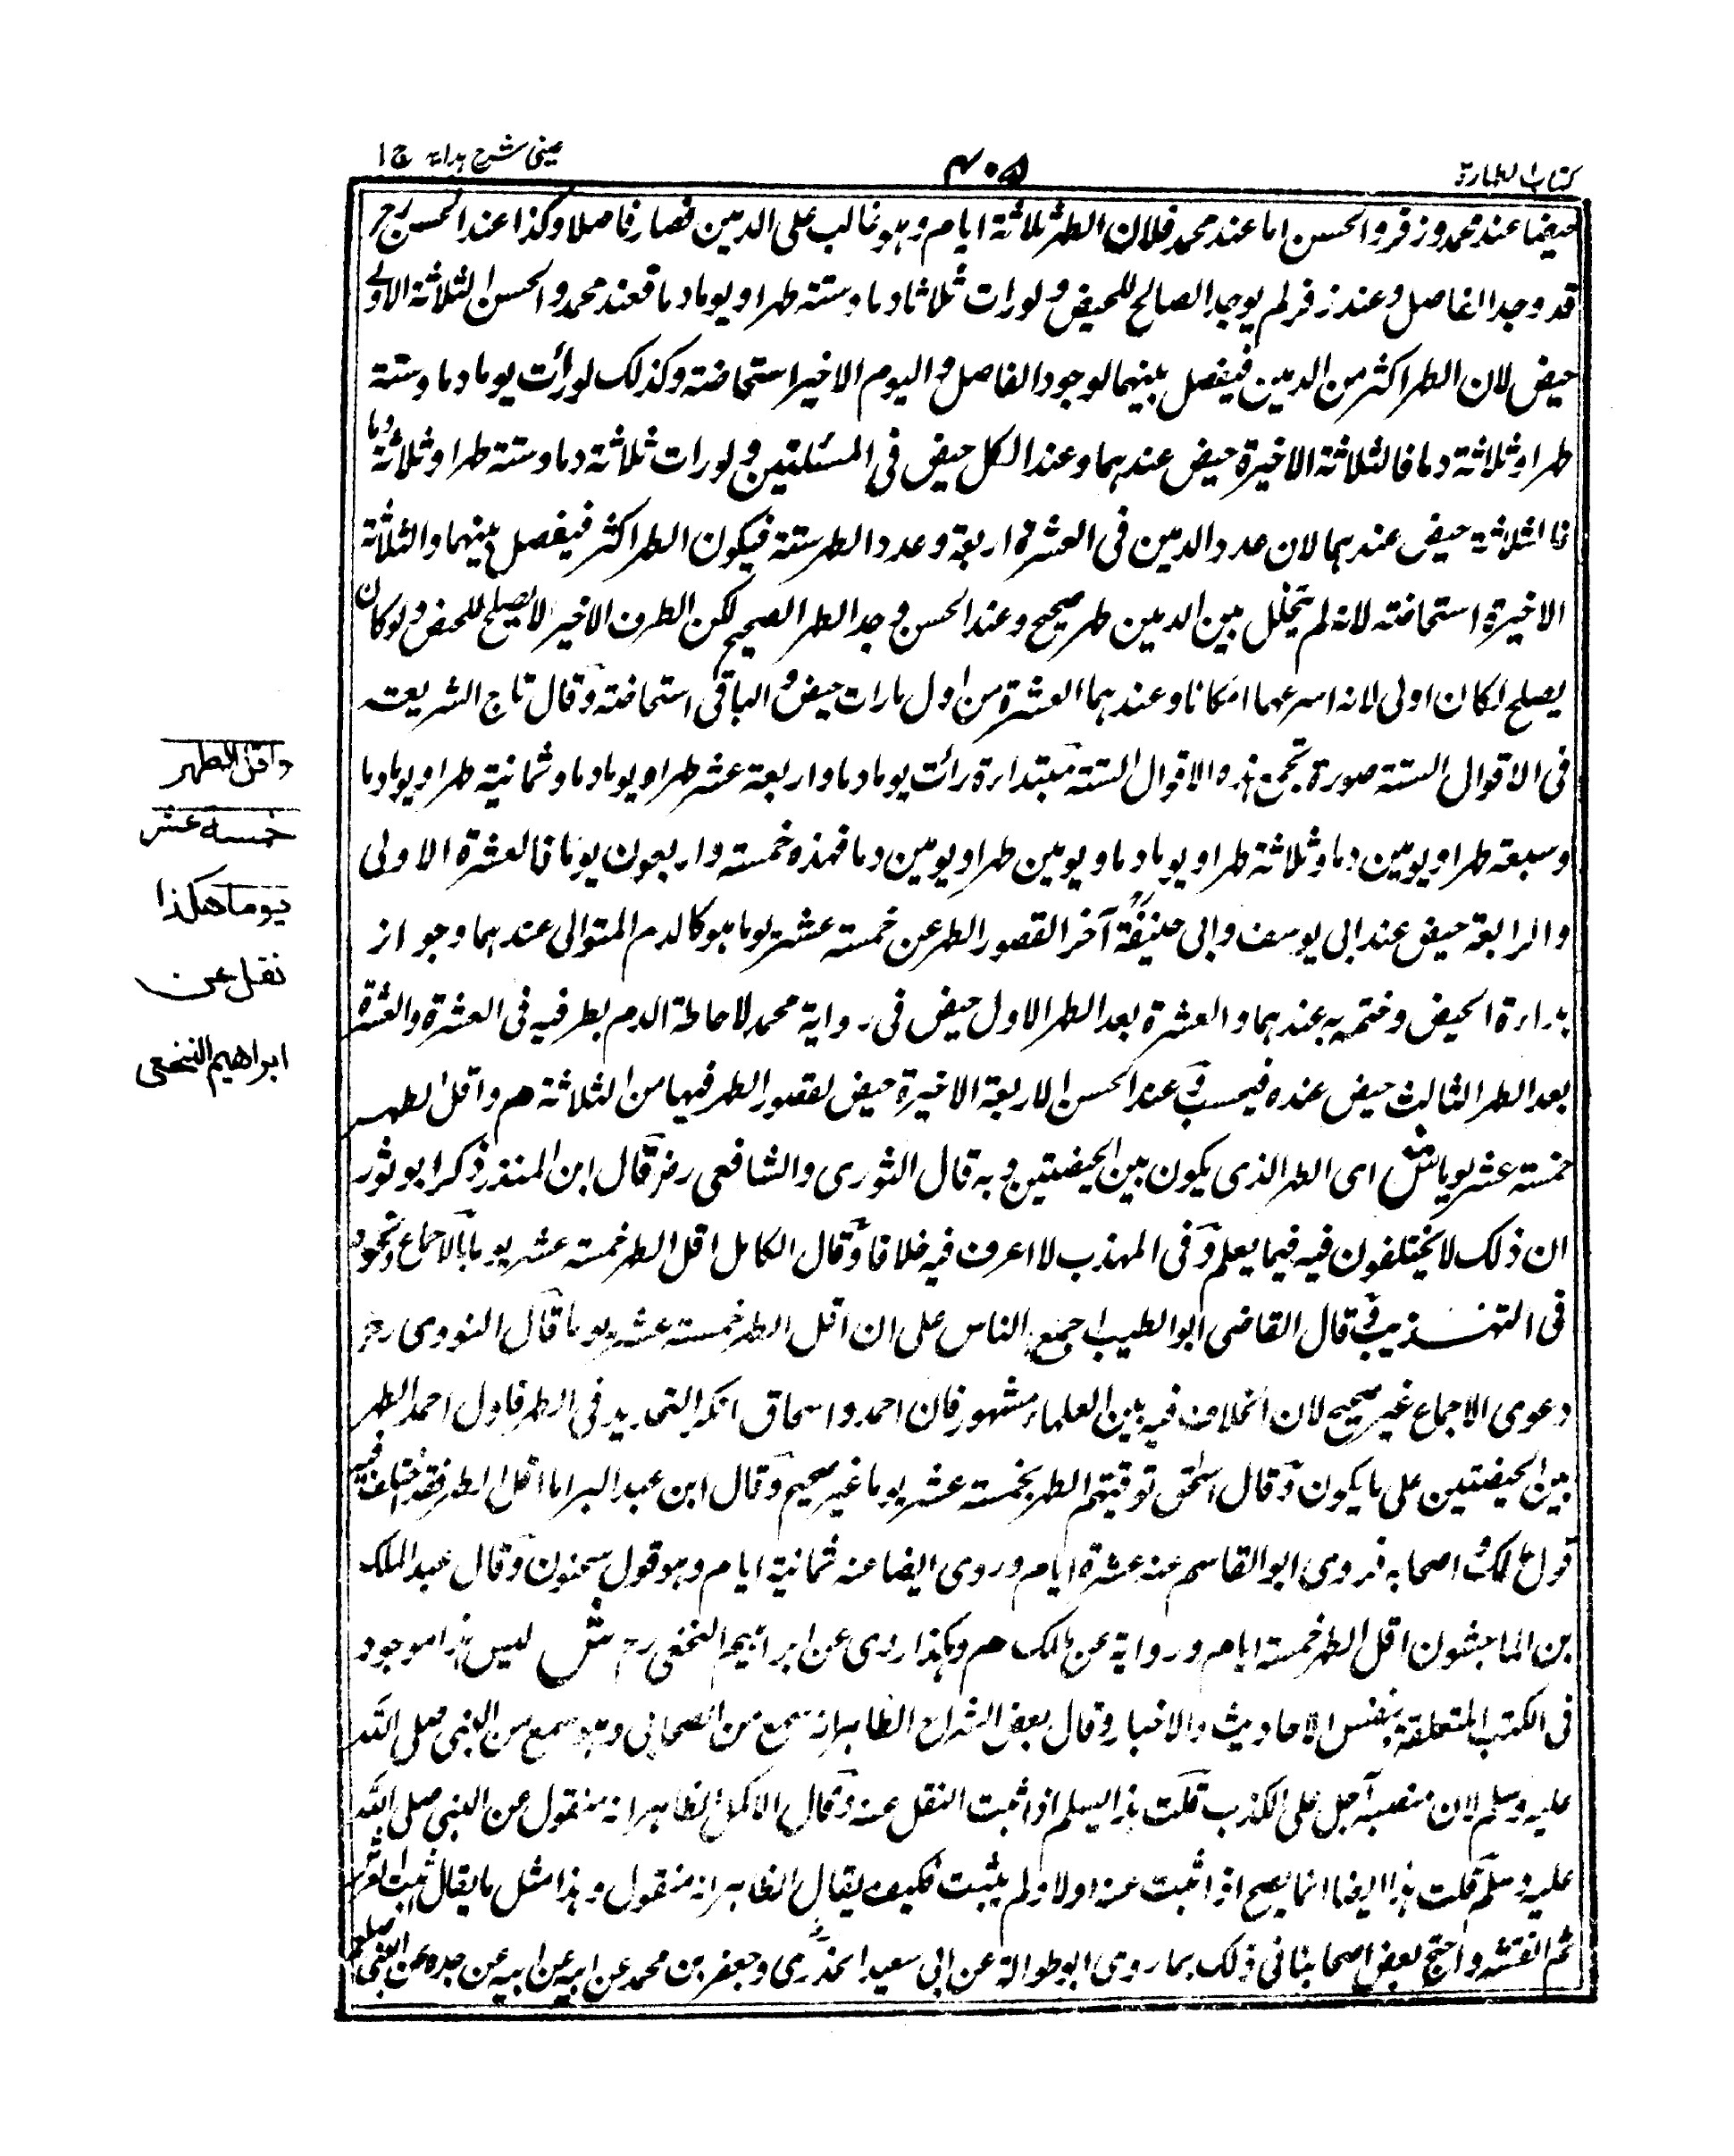 كتاب الطهارة
٤٠٥
عينى شرح هدايه ج ١
حيضا عند محمد وزفر والحسن اما عند محمد فلان الطهر ثلاثة ايام وهو غالب على الدمين فصار فاصلا وكذا عند الحسن رح
قد وجد الفاصل وعند زفر لم يوجد الصالح للحيض ولو رات ثلاثا دما وستة طهرا ويوما دما فعند محمد والحسن الثلاثة الاولى
حيض لان الطهر اكثر من الدمين فيفصل بينهما لوجود الفاصل و اليوم الاخير استحاضة وكذلك لو رأت يوما دما وستة
طهرا وثلاثة دما فالثلاثة الاخيرة حيض عندهما وعند الكل حيض فى المسئلتين ولو رات ثلاثة دما وستة طهرا وثلاثة دما
فالثلاثة حيض عندهما لان عدد الدمين فى العشرة اربعة وعدد الطهر ستة فيكون الطهر اكثر فيفصل بينهما والثلاثة
الاخيرة استحاضته لانه لم يتخلل بين الدمين طهر صحيح وعند الحسن وجد الطهر الصحيح لكن الطرف الاخير لا يصلح للحيض ولو كان
يصلح لكان اولى لانه اسرعهما امكانا وعندهما العشرة من اول ما رات حيض والباقى استحاضة وقال تاج الشريعة
فى الاقوال الستة صورة تجمع هذه الاقوال الستة مبتدأة رأت يوما دما واربعة عشر طهرا ويوما دما وثمانية طهرا ويوما دما
وسبعة طهرا ويومين دما وثلاثة طهرا ويوما دما ويومين طهرا ويومين دما فهذه خمسة واربعون يوما فالعشرة الاولى
والرابعة حيض عند ابى يوسف وابى حنيفة آخر القصور الطهر عن خمسة عشر يوما هو كالدم المتوالى عندهما وجواز
بداءة الحيض وختمه به عندهما والعشرة بعد الطهر الاول حيض فى رواية محمد لاحاطة الدم بطرفيه فى العشرة والعشرة
بعد الطهر الثالث حيض عنده فيحسب وعند الحسن الاربعة الاخيرة حيض لقصور الطهر فيها من الثلاثة هم واقل لطهر
خمسة عشر يوما ش اى الطهر الذى يكون بين الحيضتين وبه قال الثورى والشافعى رض قال ابن المنذر ذكر ابو ثور
ان ذلك لا يختلفون فيه فيما يعلم وفى المهذب لا اعرف فيه خلافا وقال الكامل اقل الطهر خمسة عشر يوما بالاجماع ونحوه
فى التهذيب وقال القاضى ابو الطيب اجمع الناس على ان اقل الطهر خمسة عشر يوما قال النووى رح
دعوى الاجماع غير صحيح لان الخلاف فيه بين العلماء مشهور فان احمد واسحاق انكرا التحديد فى الطهر فاول احمد الطهر
بين الحيضتين على ما يكون وقال اسحق توقيتهم الطهر بخمسة عشر يوما غير صحيح وقال ابن عبد البر اما اقل الطهر فقد اختلف فيه
قول مالك واصحابه فروى ابو القاسم عنه عشرة ايام وروى ايضا عنه ثمانية ايام وهو قول سحنون وقال عبد الملك
بن الماجشون اقل الطهر خمسة ايام ورواية عن مالك هم وهكذا روى عن ابراهيم النخعى رح ش ليس هذا موجود
فى الكتب المتعلقة بنفس الاحاديث والاخبار وقال بعض الشراح الظاهر انه سمع من الصحابى وهو سمع من النبى صلى الله
عليه وسلم لان منصبه اجل على الكذب قلت هذا يسلم اذا ثبت النقل عنه وقال الاكمل الظاهر انه منقول عن النبى صلى الله
عليه وسلم قلت هذا ايضا انما يصح اذا ثبت عنه اولا ولم يثبت فكيف يقال الظاهر انه منقول وهذا مثل ما يقال ثبت العرش
ثم انقشه واحتج بعض اصحابنا فى ذلك بما روى ابو طوالة عن ابى سعيد الخدرى وجعفر بن محمد عن ابيه عن جده عن النبى صلعم
واقل الطهر
خمسة عشر
يوما هكذا
نقل عن
ابراهيم النخعى